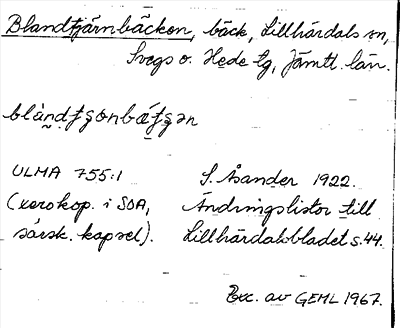 Blandtjärnbäcken, bäck, Lillhärdals sn,
Svegs o. Hede tg, Jämtl. län.
ULMA 755:1 S. Åsander 1922.
(xerokop. i SOA, Ändringslistor till
särsk. kapsel). Lillhärdalsbladet s. 44.
Exc. av GEHL 1967.